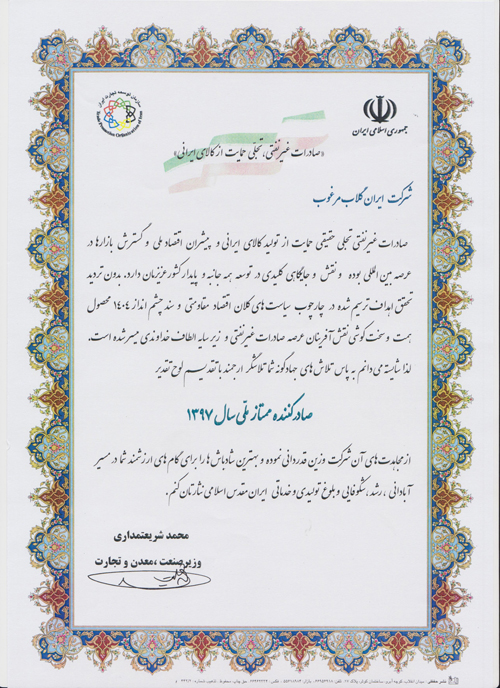 جمهوری اسلامی ایران
سازمان توسعه تجارت ایران
Trade Promotion Organization of Iran
«صادرات غیرنفتی، تجلی حمایت از کالای ایرانی»
شرکت ایران گلاب مرغوب
صادرات غیرنفتی تجلی حقیقی حمایت از تولید کالای ایرانی و پیشران اقتصاد ملی و گسترش بازارها در
عرصه بین المللی بوده و نقش و جایگاهی کلیدی در توسعه همه جانبه و پایدار کشور عزیزمان دارد، بدون تردید
تحقق اهداف ترسیم شده در چارچوب سیاست‌های کلان اقتصاد مقاومتی و سند چشم انداز ۱۴۰۴ محصول
همت و سخت کوشی نقش آفرینان عرصه صادرات غیرنفتی و زیر سایه الطاف خداوندی میسر شده است.
لذا شایسته می دانم به پاس تلاش های جهادگونه شما تلاشگر ارجمند با تقدیم لوح تقدیر
صادرکننده ممتاز ملّی سال ۱۳۹۷
از مجاهدت‌های آن شرکت وزین قدردانی نموده و بهترین شادباش ها را برای گام های ارزشمند شما در مسیر
آبادانی، رشد، شکوفایی و بلوغ تولیدی و خدماتی ایران مقدس اسلامی نثارتان کنم.
محمد شریعتمداری
وزیر صنعت، معدن و تجارت